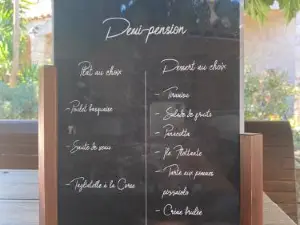 Demi-pension
Plat au choix
- Poulet basquaise
- Sauté de veau
- Tagliatelle à la
Dessert au choix
- Tiramisu
- Salade de fruits
- Panacotta
- Île Flottante
- Tarte aux pommes
- Crème brulée